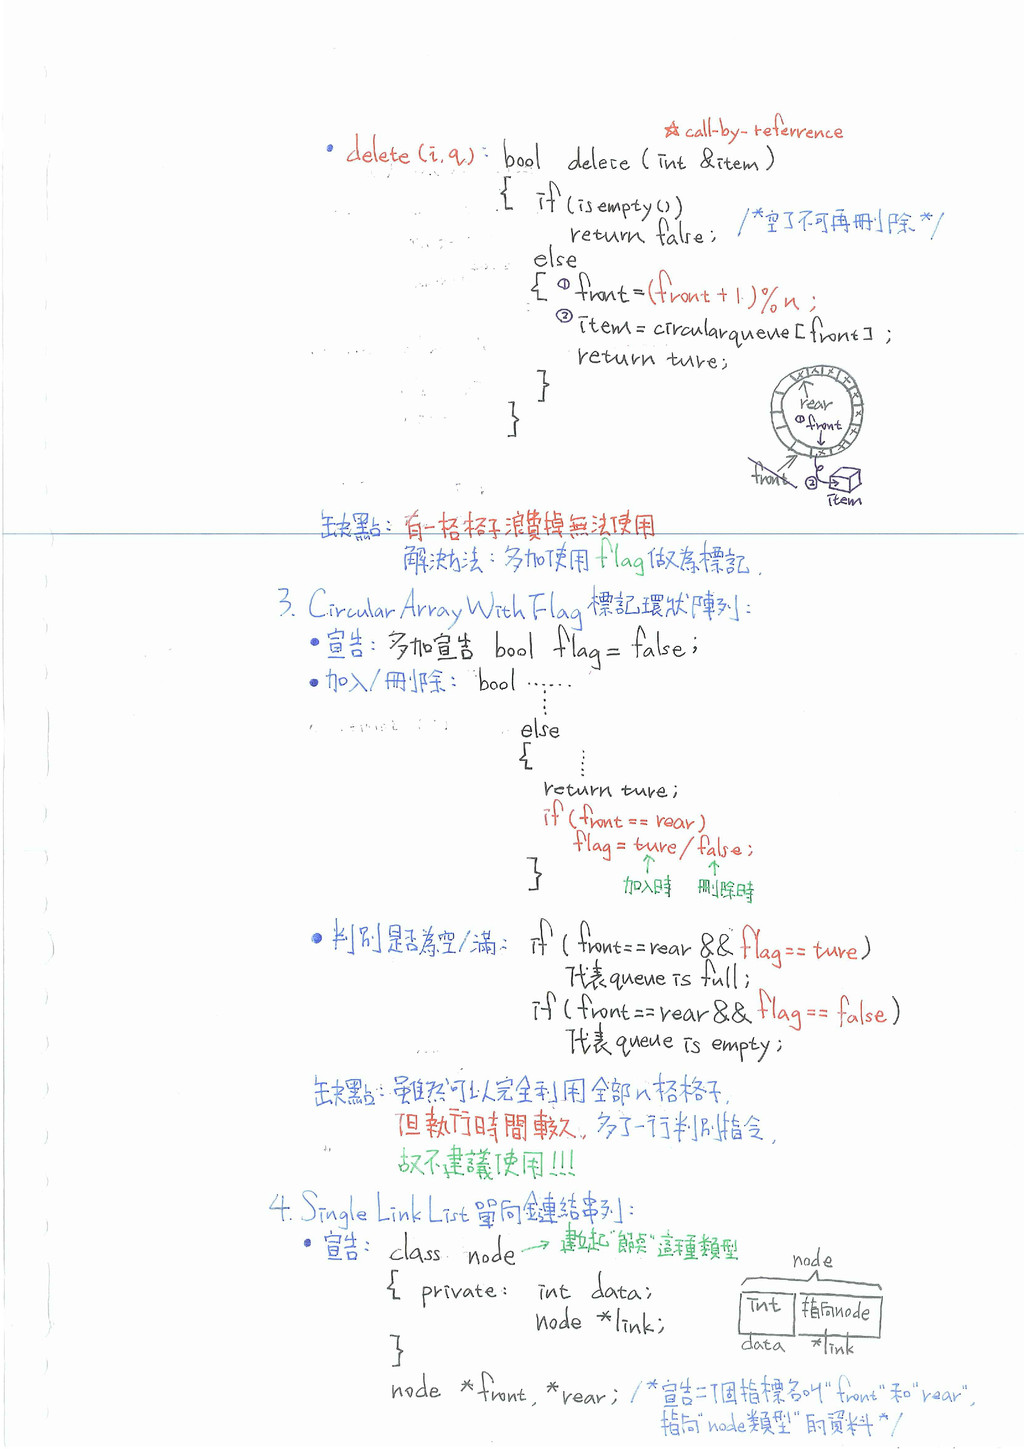 ☆ call-by-referrence
• delete(i,q): bool delece (int &item)
{ if (isempty())
return false; /*空了不可再刪除*/
else
{ ① front=(front+1)%n;
② item=circularqueue[front];
return ture;
}
}
rear
① front
front
②
item
缺點: 有一格格子浪費掉無法使用
解決方法: 多加使用flag做為標記.
3. Circular Array With Flag 標記環狀陣列:
• 宣告: 多加宣告 bool flag = false;
• 加入/刪除: bool ......
else
{
return ture;
if (front == rear)
flag = ture/false;
}
加入時 刪除時
• 判別是否為空/滿: if (front==rear && flag==ture)
代表queue is full;
if (front==rear && flag==false)
代表queue is empty;
缺點: 雖然可以完全利用全部n格格子,
但執行時間較久, 多了一行判別指令,
故不建議使用!!!
4. Single Link List 單向鏈連結串列:
• 宣告: class node → 建立起"節點"這種類型
{ private: int data;
node *link;
}
node
int 指向node
data *link
node *front, *rear; /*宣告二個指標名叫"front"和"rear",
指向"node類型"的資料*/